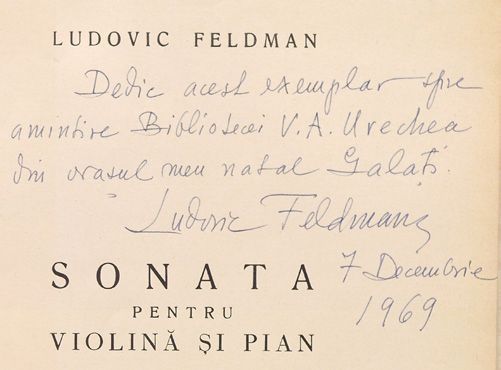 LUDOVIC FELDMAN
Dedic acest exemplar spre
amintire Bibliotecei V.A. Urechea
din orașul meu natal Galați.
Ludovic Feldman
7 Decembrie
1969
SONATA
PENTRU
VIOLINĂ ȘI PIAN